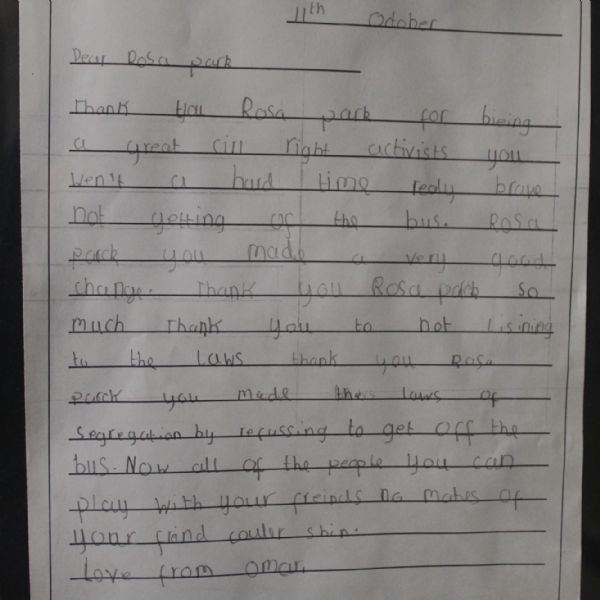 11th October
Dear Rosa park
Thank you Rosa park for bieing
a great cill right activists you
went a hard time realy brave
not getting of the bus. Rosa
park you made a very good
change. Thank you Rosa park so
much Thank you to not Lisining
to the Laws thank you Rosa
parck you made the laws of
segregation by recussing to get off the
bus. Now all of the people you can
play with your freinds no mates of
your frind couler shin.
Love from omar.